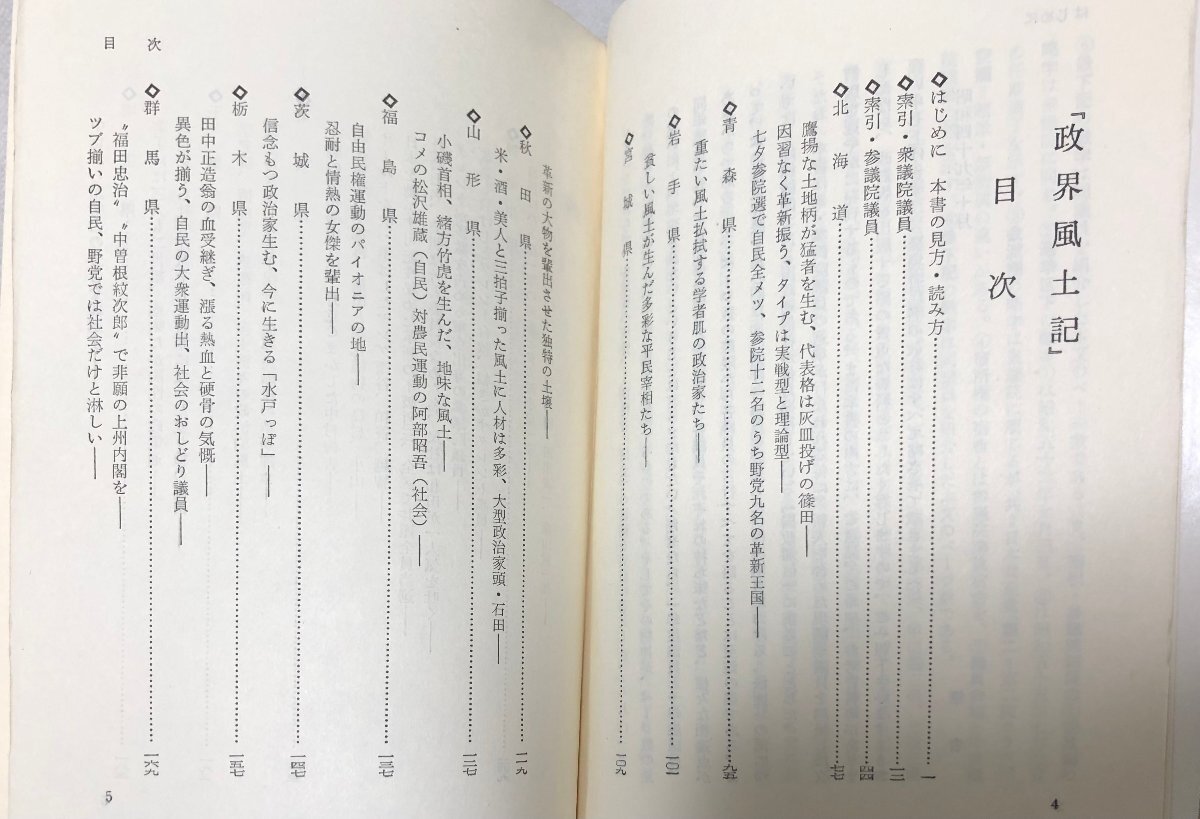 『政界風土記』
目次
◇はじめに 本書の見方・読み方…………一
◇索引・衆議院議員…………一三
◇索引・参議院議員…………四四
◇北海道…………七七
鷹揚な土地柄が猛者を生む、代表格は灰皿投げの篠田――
因習なく革新振う、タイプは実戦型と理論型――
七夕参院選で自民全メツ、参院十二名のうち野党九名の革新王国――
◇青森県…………九五
重たい風土払拭する学者肌の政治家たち――
◇岩手県…………一〇一
貧しい風土が生んだ多彩な平民宰相たち――
◇宮城県…………一〇九
4
革新の大物を輩出させた独特の土壌――
◇秋田県…………一一九
米・酒・美人と三拍子揃った風土に人材は多彩、大型政治家頭・石田――
◇山形県…………一二七
小磯首相、緒方竹虎を生んだ、地味な風土――
コメの松沢雄蔵（自民）対農民運動の阿部昭吾（社会）――
◇福島県…………一三七
自由民権運動のパイオニアの地――
忍耐と情熱の女傑を輩出――
◇茨城県…………一四七
信念もつ政治家生む、今に生きる「水戸っぽ」――
◇栃木県…………一五七
田中正造翁の血受継ぎ、漲る熱血と硬骨の気慨――
異色が揃う、自民の大衆運動出、社会のおしどり議員――
◇群馬県…………一六九
〝福田忠治〟〝中曽根紋次郎〟で非願の上州内閣を――
ツブ揃いの自民、野党では社会だけと淋しい――
目次
5